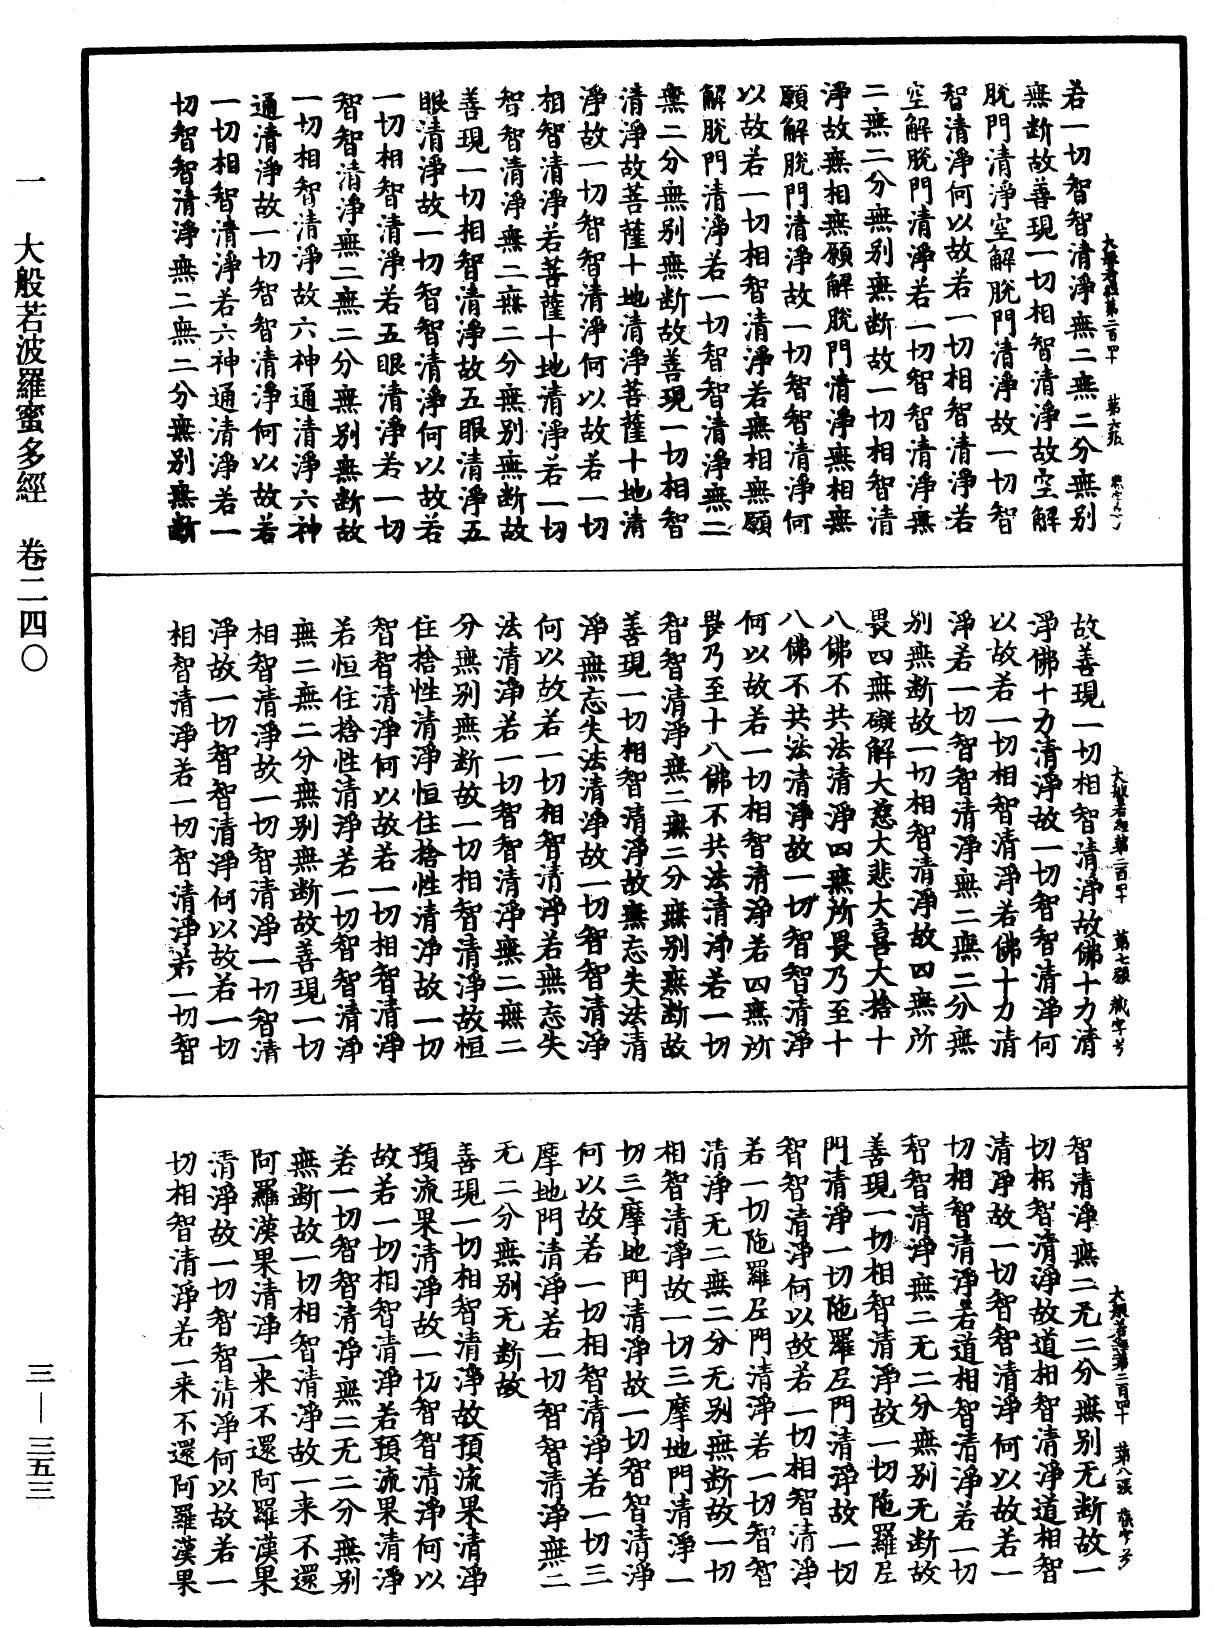 一 大般若波羅蜜多經 卷二四〇
三—三五三
大般若經第二百四十 第六張
若一切智智清淨無二無二分無別
無斷故善現一切相智清淨故空解
脫門清淨空解脫門清淨故一切智
智清淨何以故若一切相智清淨若
空解脫門清淨若一切智智清淨無
二無二分無別無斷故一切相智清
淨故無相無願解脫門清淨無相無
願解脫門清淨故一切智智清淨何
以故若一切相智清淨若無相無願
解脫門清淨若一切智智清淨無二
無二分無別無斷故善現一切相智
清淨故菩薩十地清淨菩薩十地清
淨故一切智智清淨何以故若一切
相智清淨若菩薩十地清淨若一切
智智清淨無二無二分無別無斷故
善現一切相智清淨故五眼清淨五
眼清淨故一切智智清淨何以故若
一切相智清淨若五眼清淨若一切
智智清淨無二無二分無別無斷故
一切相智清淨故六神通清淨六神
通清淨故一切智智清淨何以故若
一切相智清淨若六神通清淨若一
切智智清淨無二無二分無別無斷
大般若經第二百四十 第七張
故善現一切相智清淨故佛十力清
淨佛十力清淨故一切智智清淨何
以故若一切相智清淨若佛十力清
淨若一切智智清淨無二無二分無
別無斷故一切相智清淨故四無所
畏四無礙解大慈大悲大喜大捨十
八佛不共法清淨四無所畏乃至十
八佛不共法清淨故一切智智清淨
何以故若一切相智清淨若四無所
畏乃至十八佛不共法清淨若一切
智智清淨無二無二分無別無斷故
善現一切相智清淨故無忘失法清
淨無忘失法清淨故一切智智清淨
何以故若一切相智清淨若無忘失
法清淨若一切智智清淨無二無二
分無別無斷故一切相智清淨故恒
住捨性清淨恒住捨性清淨故一切
智智清淨何以故若一切相智清淨
若恒住捨性清淨若一切智智清淨
無二無二分無別無斷故善現一切
相智清淨故一切智清淨一切智清
淨故一切智智清淨何以故若一切
相智清淨若一切智清淨若一切智
大般若經第二百四十 第八張
智清淨無二无二分無別无斷故一
切相智清淨故道相智清淨道相智
清淨故一切智智清淨何以故若一
切相智清淨若道相智清淨若一切
智智清淨無二无二分無別无斷故
善現一切相智清淨故一切陁羅尼
門清淨一切陁羅尼門清淨故一切
智智清淨何以故若一切相智清淨
若一切陁羅尼門清淨若一切智智
清淨无二無二分无別無斷故一切
相智清淨故一切三摩地門清淨一
切三摩地門清淨故一切智智清淨
何以故若一切相智清淨若一切三
摩地門清淨若一切智智清淨無二
无二分無別无斷故
善現一切相智清淨故預流果清淨
預流果清淨故一切智智清淨何以
故若一切相智清淨若預流果清淨
若一切智智清淨無二无二分無別
無斷故一切相智清淨故一来不還
阿羅漢果清淨一来不還阿羅漢果
清淨故一切智智清淨何以故若一
切相智清淨若一来不還阿羅漢果